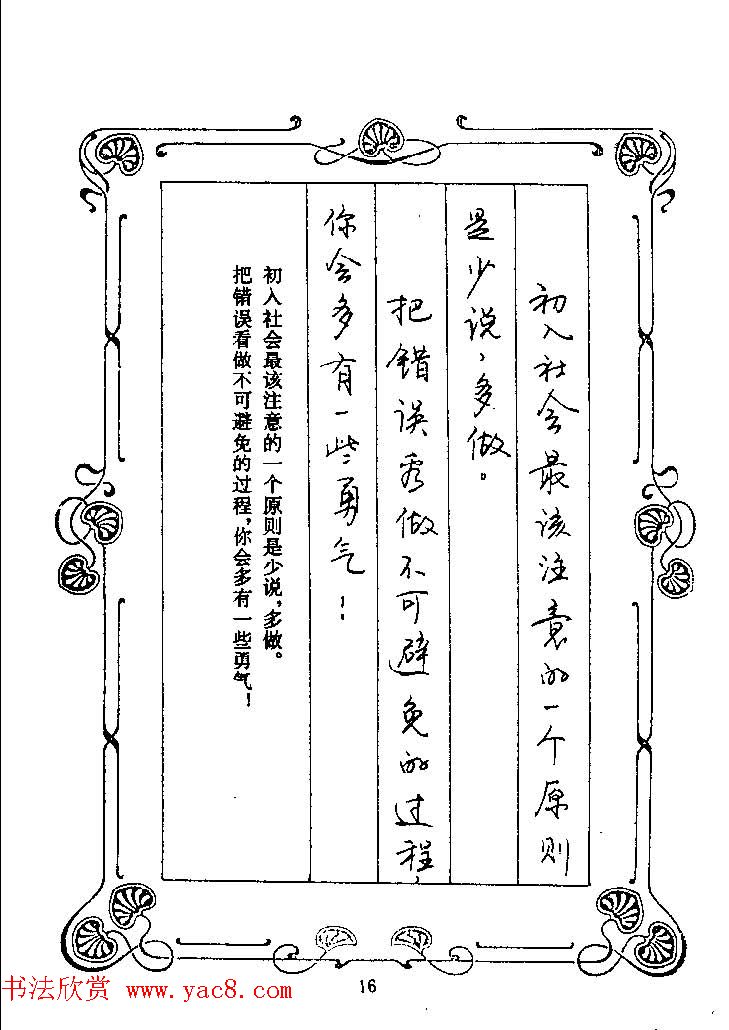 初入社会最该注意的一个原则
是少说，多做。
把错误看做不可避免的过程，
你会多有一些勇气！
初入社会最该注意的一个原则是少说，多做。
把错误看做不可避免的过程，你会多有一些勇气！
16
书法欣赏 www.yac8.com